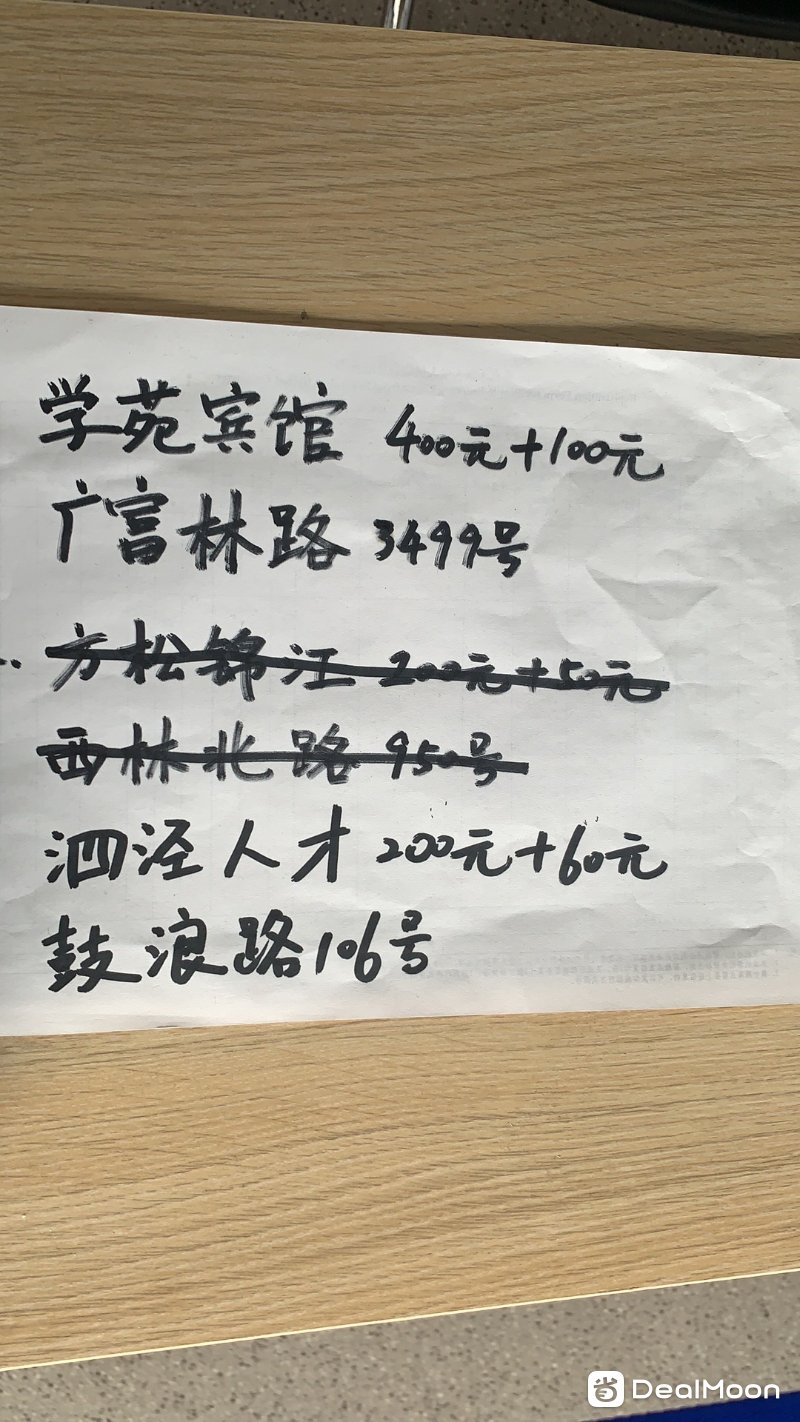 学苑宾馆 400元+100元
广富林路 3499号
方松锦江 200元+50元
西林北路 950号
泗泾人才 200元+60元
鼓浪路106号
省 DealMoon